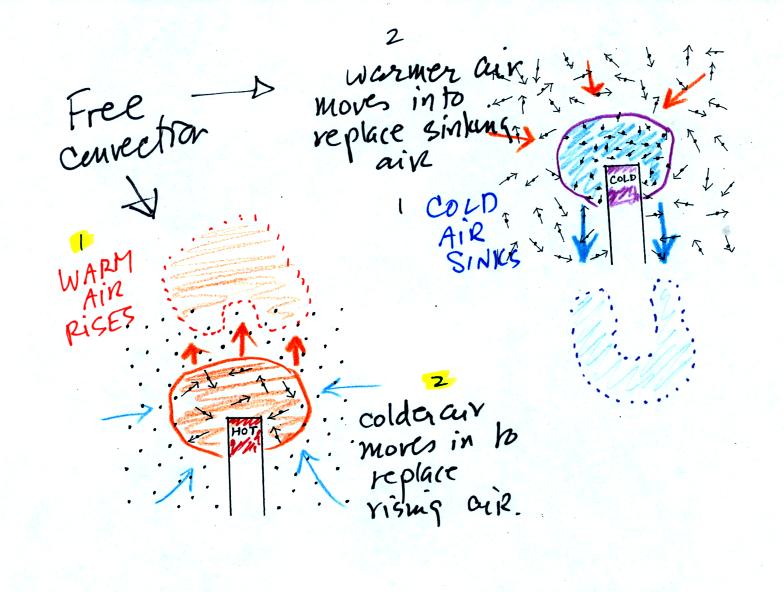 Free
convection
2
warmer air
moves into
replace sinking
air
COLD
1
COLD
AIR
SINKS
1
WARM
AIR
RISES
HOT
2
colder air
moves in to
replace
rising air.